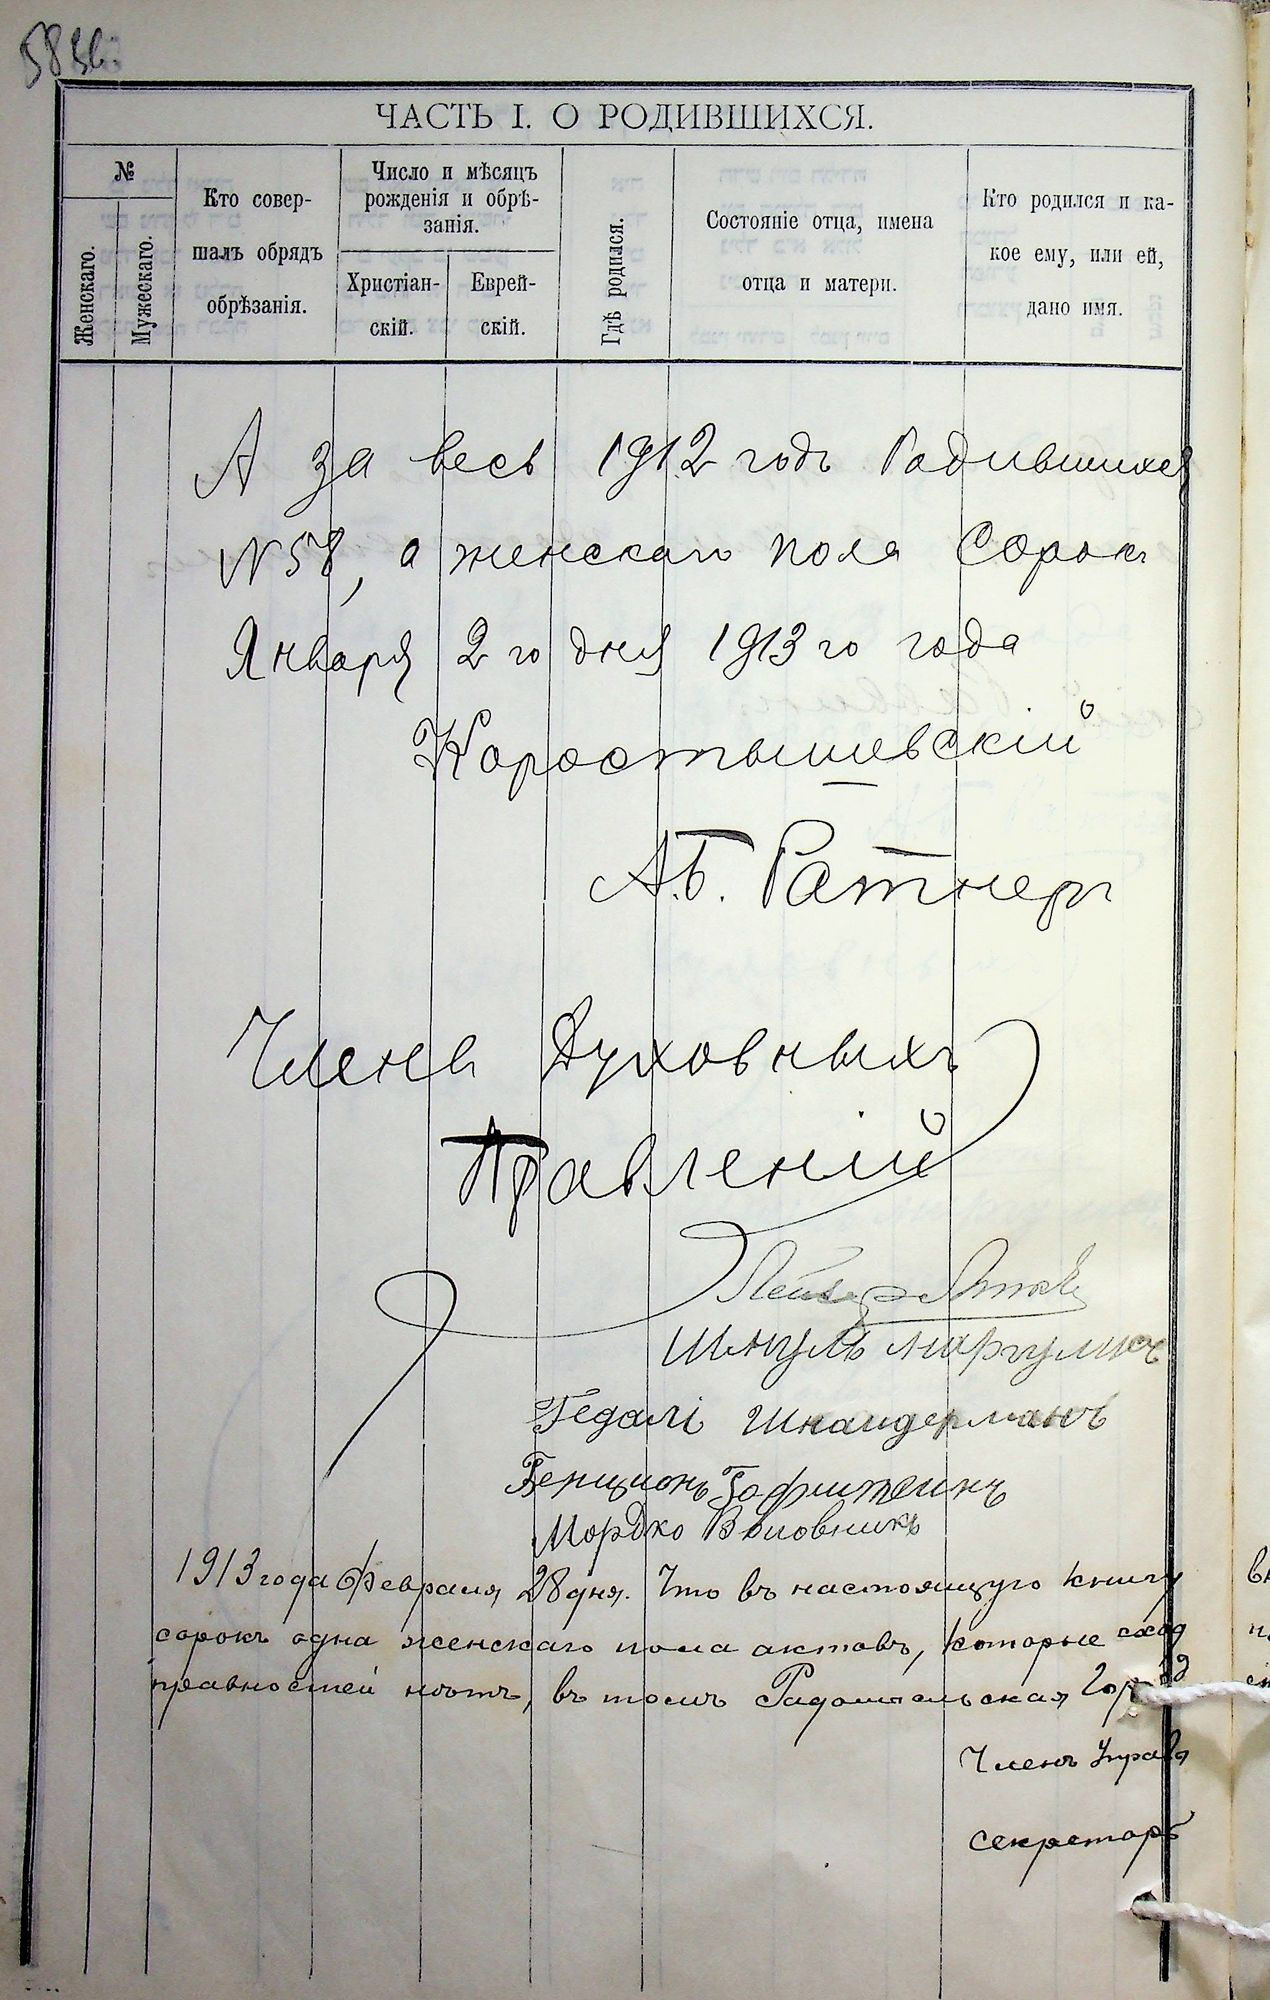 58 зв.
ЧАСТЬ I. О РОДИВШИХСЯ.
№
Женскаго.
Мужескаго.
Кто совер-
шалъ обрядъ
обрѣзанія.
Число и мѣсяцъ
рожденія и обрѣ-
занія.
Христіан-
скій.
Еврей-
скій.
Гдѣ родился.
Состояніе отца, имена
отца и матери.
Кто родился и ка-
кое ему, или ей,
дано имя.
А за весь 1912 годъ Родившихся
№ 58, а женскаго пола Сорокъ
Января 2 го дня 1913 го года
Коростышевскій
А.Б. Ратнеръ
Члены Духовныхъ
Правленій
Лейзеръ
Шмуль Маргулисъ
Гедалі Шнаидерманъ
Бенционъ Гофштеинъ
Мордко Воловникъ
1913 года Февраля 28 дня. Что въ настоящуго книгу
сорокъ одна женскаго пола актовъ, которые сход
правностей нѣтъ, въ томъ Радомысльская Гор
Членъ Управ
Секретарь